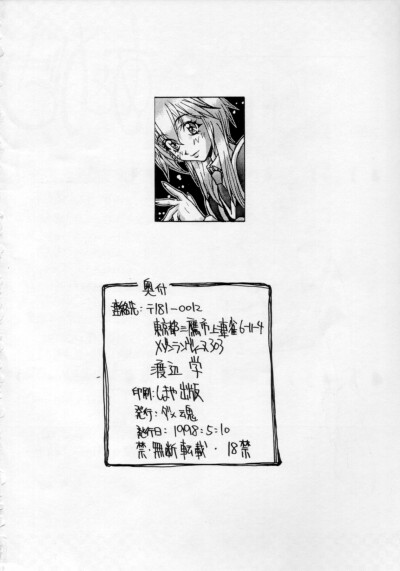 奥付
連絡先:〒181-0012
東京都三鷹市上連雀6-11-4
メゾンランヴレース303
渡辺 学
印刷:しまや出版
発行:ダメ魂
発行日:1998:5:10
禁・無断転載・18禁